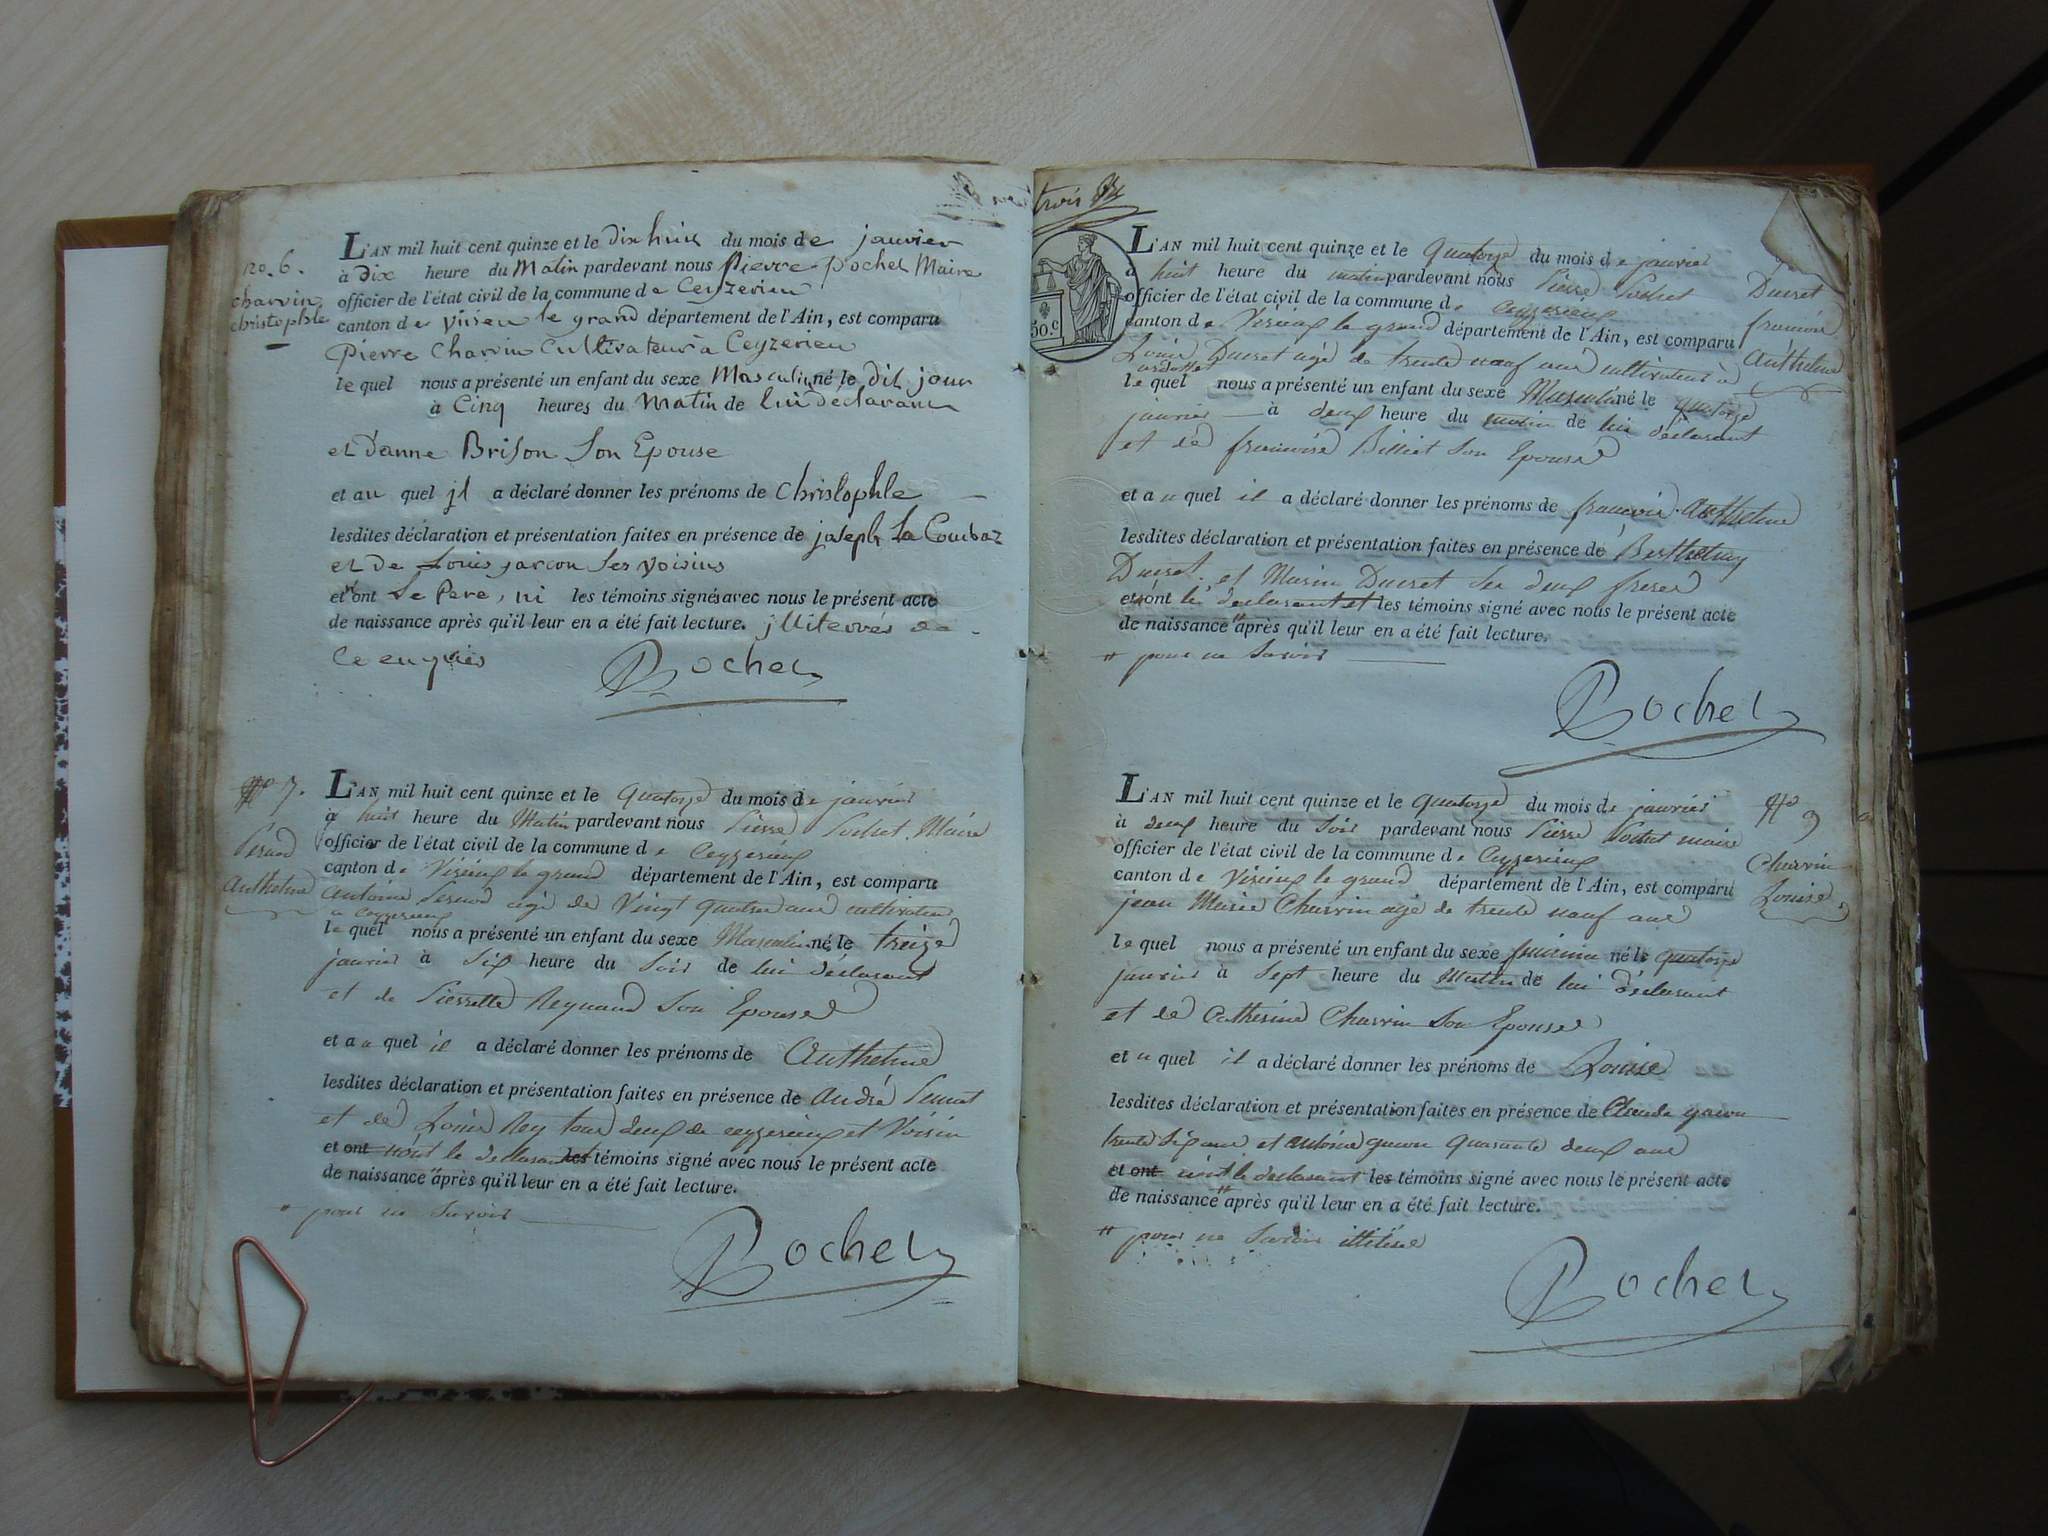 trois
no. 6.
charvin
christophle
L'AN mil huit cent quinze et le dix huit du mois de janvier
à Dix heure du Matin pardevant nous Pierre pochet Maire
officier de l'état civil de la commune de Ceyzerieu
canton de virieu le grand département de l'Ain, est comparu
pierre Charvin Cultivateur à Ceyzerieu
le quel nous a présenté un enfant du sexe Masculin né le dit jour
à Cinq heures du Matin de lui declarant
et d'anne Brison Son Epouse
et au quel jl a déclaré donner les prénoms de christophle
lesdites déclaration et présentation faites en présence de joseph la Combaz
et de Louis garcon ses voisins
et n'ont Le Pere, ni les témoins signés avec nous le présent acte
de naissance après qu'il leur en a été fait lecture. jlliterrés de
ce enquis
Pochet
No 7.
Pernod
Anthelme
L'AN mil huit cent quinze et le quatorze du mois de janvier
a huit heure du Matin pardevant nous Pierre Pochet Maire
officier de l'état civil de la commune de Ceyzerieux
canton de Virieux le grand département de l'Ain, est comparu
antoine Pernod agé de Vingt quatre ans cultivateur
a ceyzerieux
le quel nous a présenté un enfant du sexe Masculin né le treize
janvier à Six heure du Soir de lui déclarant
et de Pierrette Reynaud Son Epouse
et a u quel il a déclaré donner les prénoms de Anthelme
lesdites déclaration et présentation faites en présence de André
et de Louis Rey tous deux de ceyzerieux et Voisin
et ont n'ont le declarant et les témoins signé avec nous le présent acte
de naissance # après qu'il leur en a été fait lecture.
# pour ne Savoir
Pochet
Ducret
francois
Anthelme
L'AN mil huit cent quinze et le Quatorze du mois de janvier
a huit heure du matin pardevant nous Pierre Pochet
officier de l'état civil de la commune de ceyzerieux
canton de Virieux le grand département de l'Ain, est comparu
Louis Ducret agé de trente neuf ans cultivateur à
le quel nous a présenté un enfant du sexe Masculin né le quatorze
janvier à deux heure du matin de lui declarant
et de francoise Billiet Son Epouse
et a u quel il a déclaré donner les prénoms de francois Anthelme
lesdites déclaration et présentation faites en présence de Berthelmy
Ducret et Marin Ducret ses deux freres
et n'ont le declarant et les témoins signé avec nous le présent acte
de naissance # après qu'il leur en a été fait lecture.
# pour ne Savoir
Pochet
No 9
Charvin
Louise
L'AN mil huit cent quinze et le quatorze du mois de janvier
à deux heure du Soir pardevant nous Pierre Pochet maire
officier de l'état civil de la commune de Ceyzerieux
canton de Virieux le grand département de l'Ain, est comparu
jean Marie Charvin agé de trente neuf ans
le quel nous a présenté un enfant du sexe feminin né le quatorze
janvier à Sept heure du Matin de lui déclarant
et de Catherine Charvin Son Epouse
et u quel il a déclaré donner les prénoms de Louise
lesdites déclaration et présentation faites en présence de Claude
trente Six ans et antoine Quarante deux ans
et ont n'ont le declarant les témoins signé avec nous le présent acte
de naissance # après qu'il leur en a été fait lecture.
# pour ne Savoir
Pochet